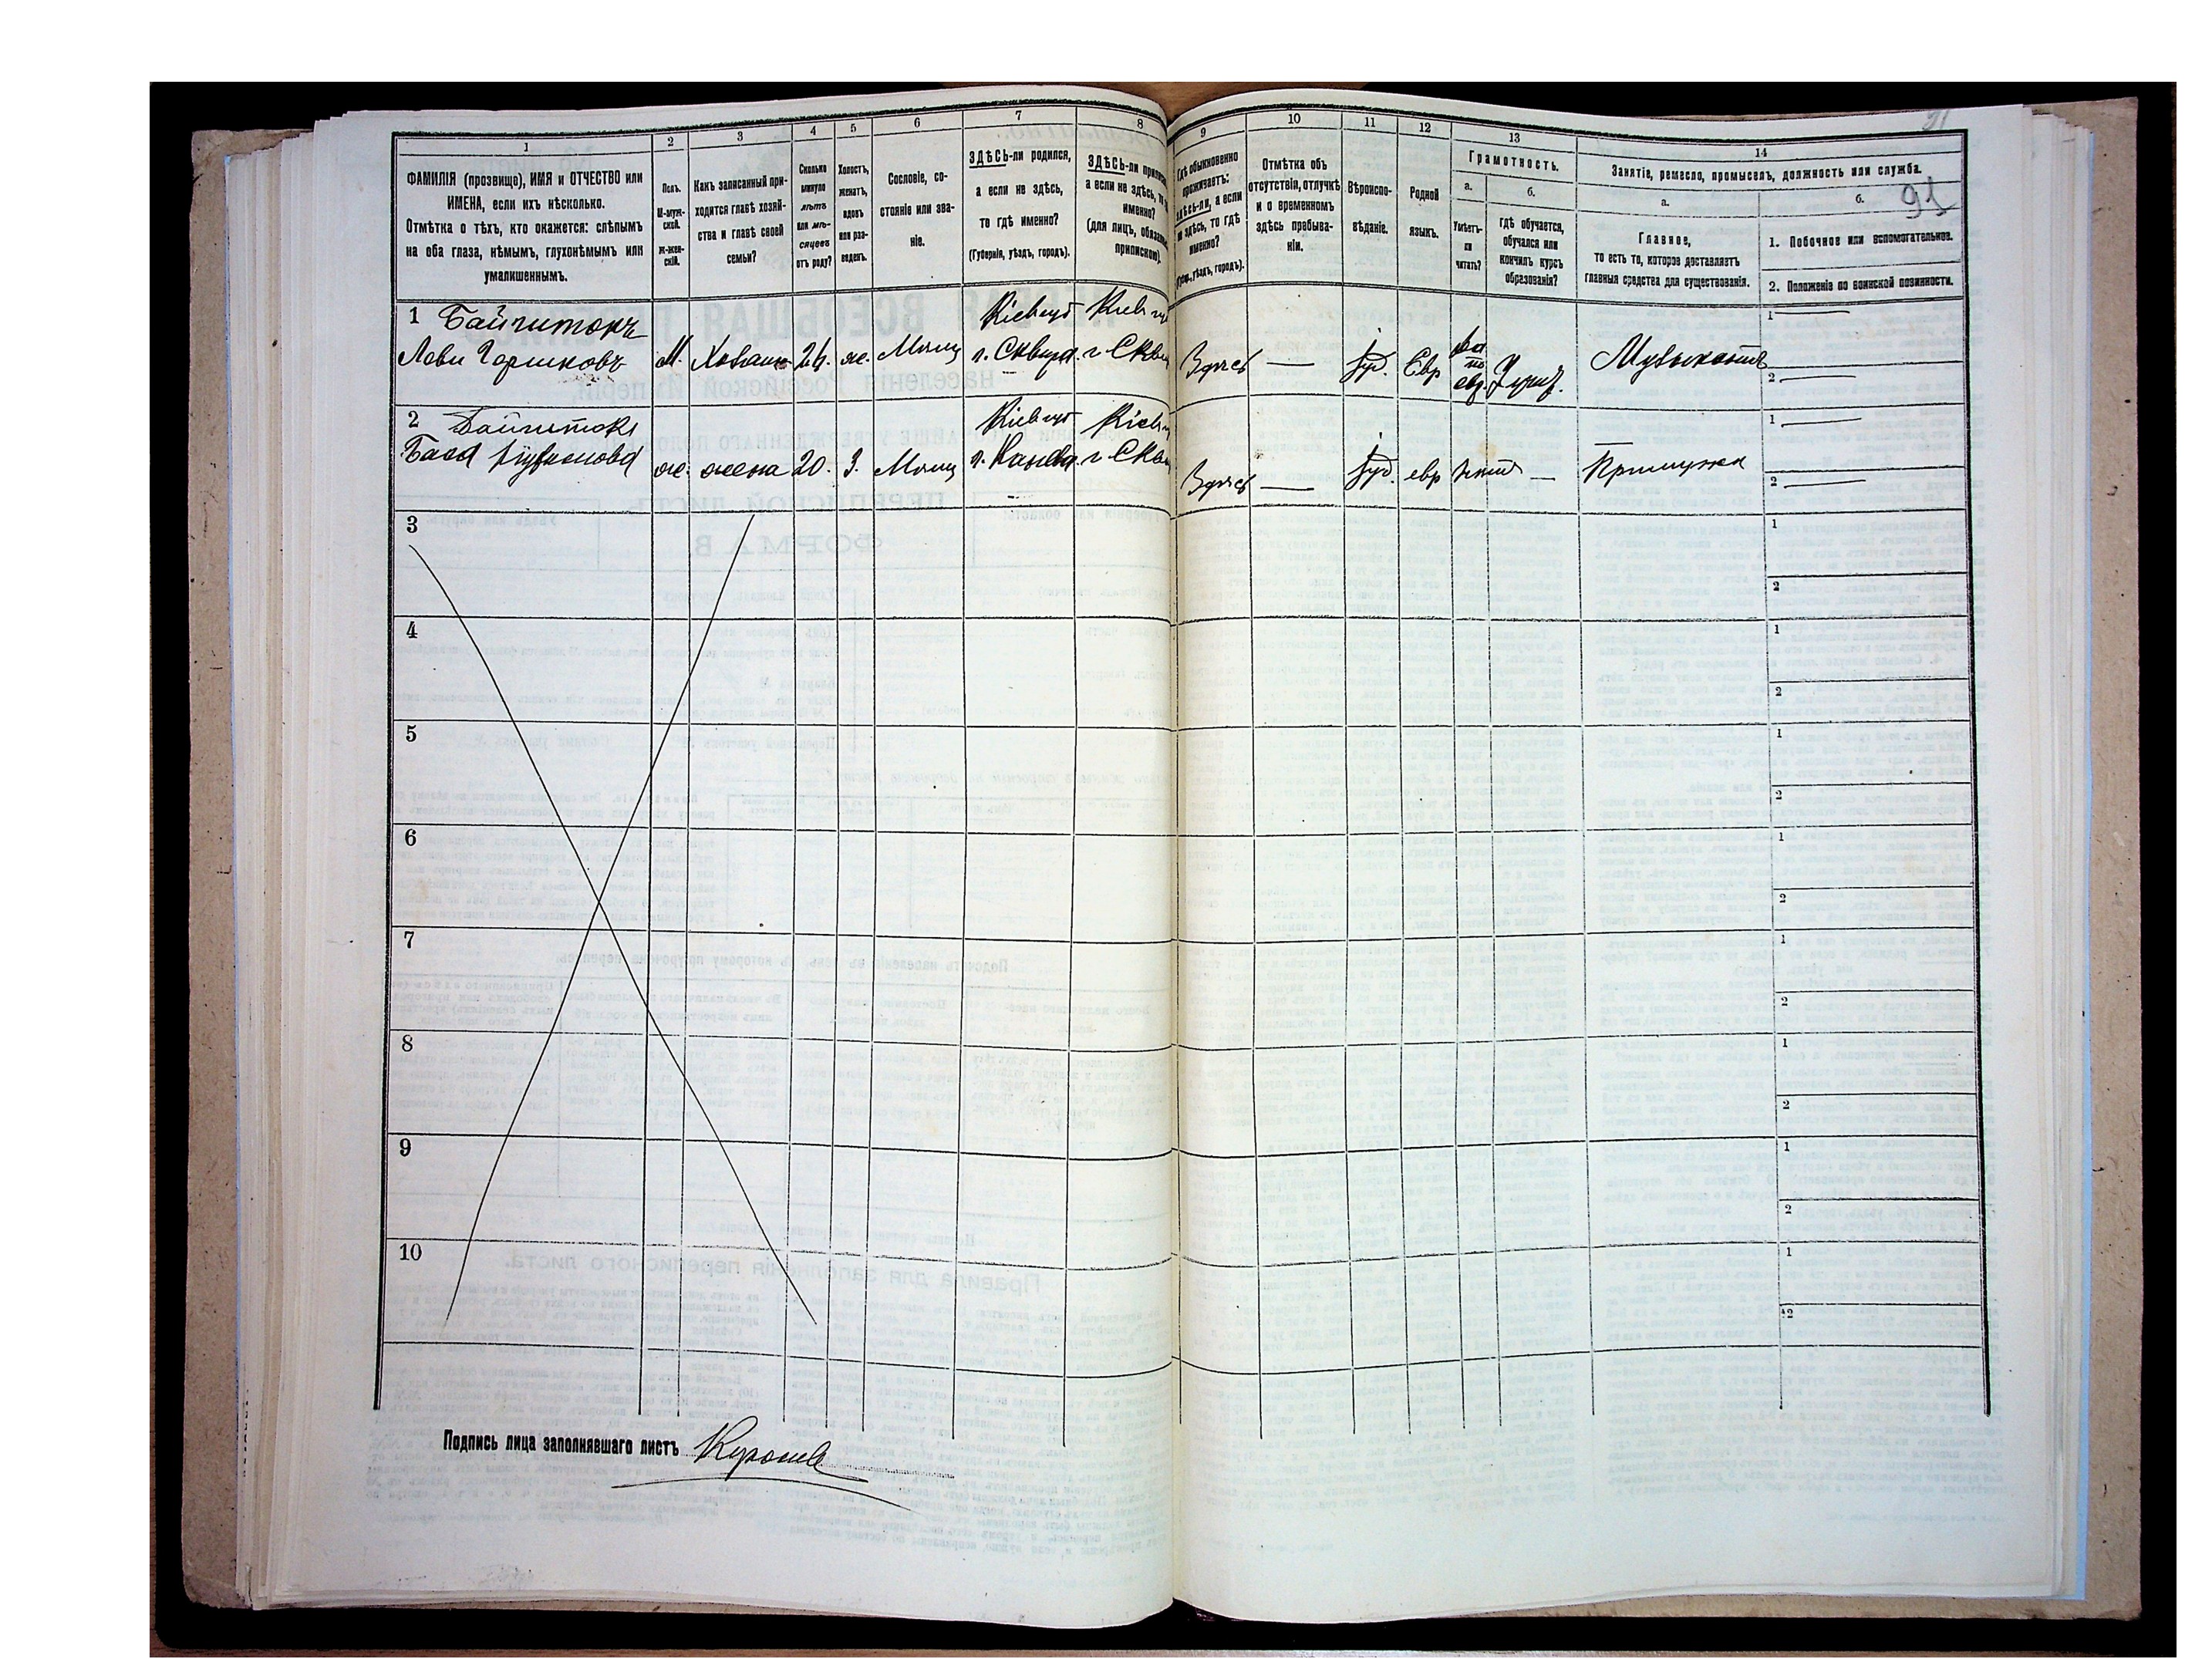 91
91
1
2
3
4
5
6
7
8
9
10
11
12
13
14
ФАМИЛІЯ (прозвище), ИМЯ и ОТЧЕСТВО или
ИМЕНА, если ихъ нѣсколько.
Отмѣтка о тѣхъ, кто окажется: слѣпымъ
на оба глаза, нѣмымъ, глухонѣмымъ или
умалишеннымъ.
Полъ.
М-муж-
ской.
Ж-жен-
скій.
Какъ записанный при-
ходится главѣ хозяй-
ства и главѣ своей
семьи?
Сколько
минуло
лѣтъ
или мѣ-
сяцевъ
отъ роду?
Холостъ,
женатъ,
вдовъ
или раз-
веденъ.
Сословіе, со-
стояніе или зва-
ніе.
ЗДѢСЬ-ли родился,
а если не здѣсь,
то гдѣ именно?
(Губернія, уѣздъ, городъ).
ЗДѢСЬ-ли припис
а если не здѣсь, то
именно?
(для лицъ, обязан
припиской).
Гдѣ обыкновенно
проживаетъ:
здѣсь-ли, а если
не здѣсь, то гдѣ
именно?
уѣздъ, городъ).
Отмѣтка объ
отсутствіи, отлучкѣ
и о временномъ
здѣсь пребыва-
ніи.
Вѣроиспо-
вѣданіе.
Родной
языкъ.
Грамотность.
а.
б.
Умѣетъ-
ли
читать?
гдѣ обучается,
обучался или
кончилъ курсъ
образованія?
Занятіе, ремесло, промыселъ, должность или служба.
а.
б.
Главное,
то есть то, которое доставляетъ
главныя средства для существованія.
1. Побочное или вспомогательное.
2. Положеніе по воинской повинности.
1 Байчитокъ
Леви Гершковъ М. Хозяинъ 24. ж. Мѣщ
Кіев губ
г. Сквира.
Кіев губ
г. Скви
Здѣсь — Іуд. Евр
да
по
евр.
Музыкантъ
1
2
2 Байчиток
Бася
ж. жена 20. З. Мѣщ
Кіев губ
г. Канева.
Кіев
г. Скви
Здѣсь — Іуд. евр нѣтъ —
1
2
3
1
2
4
1
2
5
1
2
6
1
2
7
1
2
8
1
2
9
1
2
10
1
2
Подпись лица заполнявшаго листъ